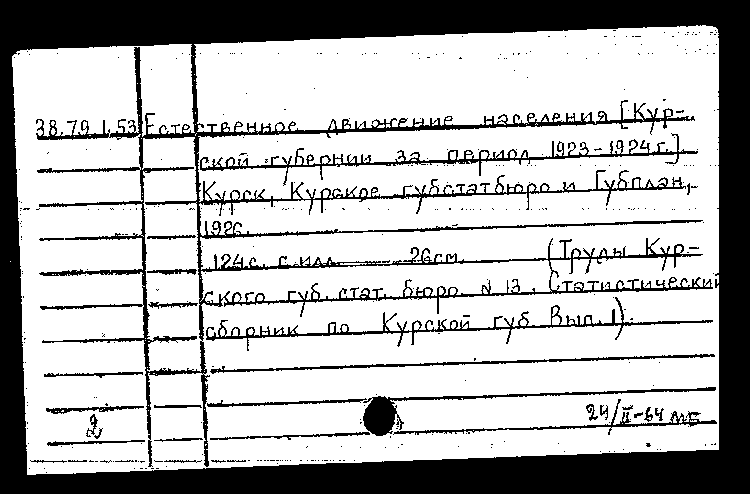 38.79.1.53 Естественное движение населения [Кур-
ской губернии за период 1923-1924 г.].
Курск, Курское губстатбюро и Губплан,
1926.
124 с. с илл. 26 см. (Труды Кур-
ского губ. стат. бюро № 13. Статистический
сборник по Курской губ. Вып. 1).
2
24/II-64 МБ